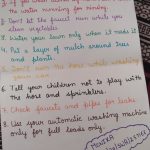 1. If you
the water running for rinsing.
2. Don't let the faucet run while you
clean vegetables
3. Water your lawn only when it needs it.
4. Put a layer of mulch around trees
and plants.
5. Don't run the hose while washing
your car.
6. Tell your children not to play with
the hose and sprinklers.
7. Check faucets and pipes for leaks.
8. Use your automatic washing machine
only for full loads only.